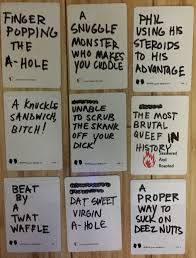 FINGER
POPPING
THE
A-HOLE
A
SNUGGLE
MONSTER
WHO MAKES
YOU CUDDLE
PHIL
USING HIS
STEROIDS
TO HIS
ADVANTAGE
A KNUCKLE
SANDWICH,
BITCH!
UNABLE
TO SCRUB
THE SKANK
OFF YOUR
DICK
THE MOST
BRUTAL
QUEEF IN
HISTORY
BEAT
BY
A
TWAT
WAFFLE
DAT SWEET
VIRGIN
A-HOLE
A
PROPER
WAY TO
SUCK ON
DEEZ NUTTS